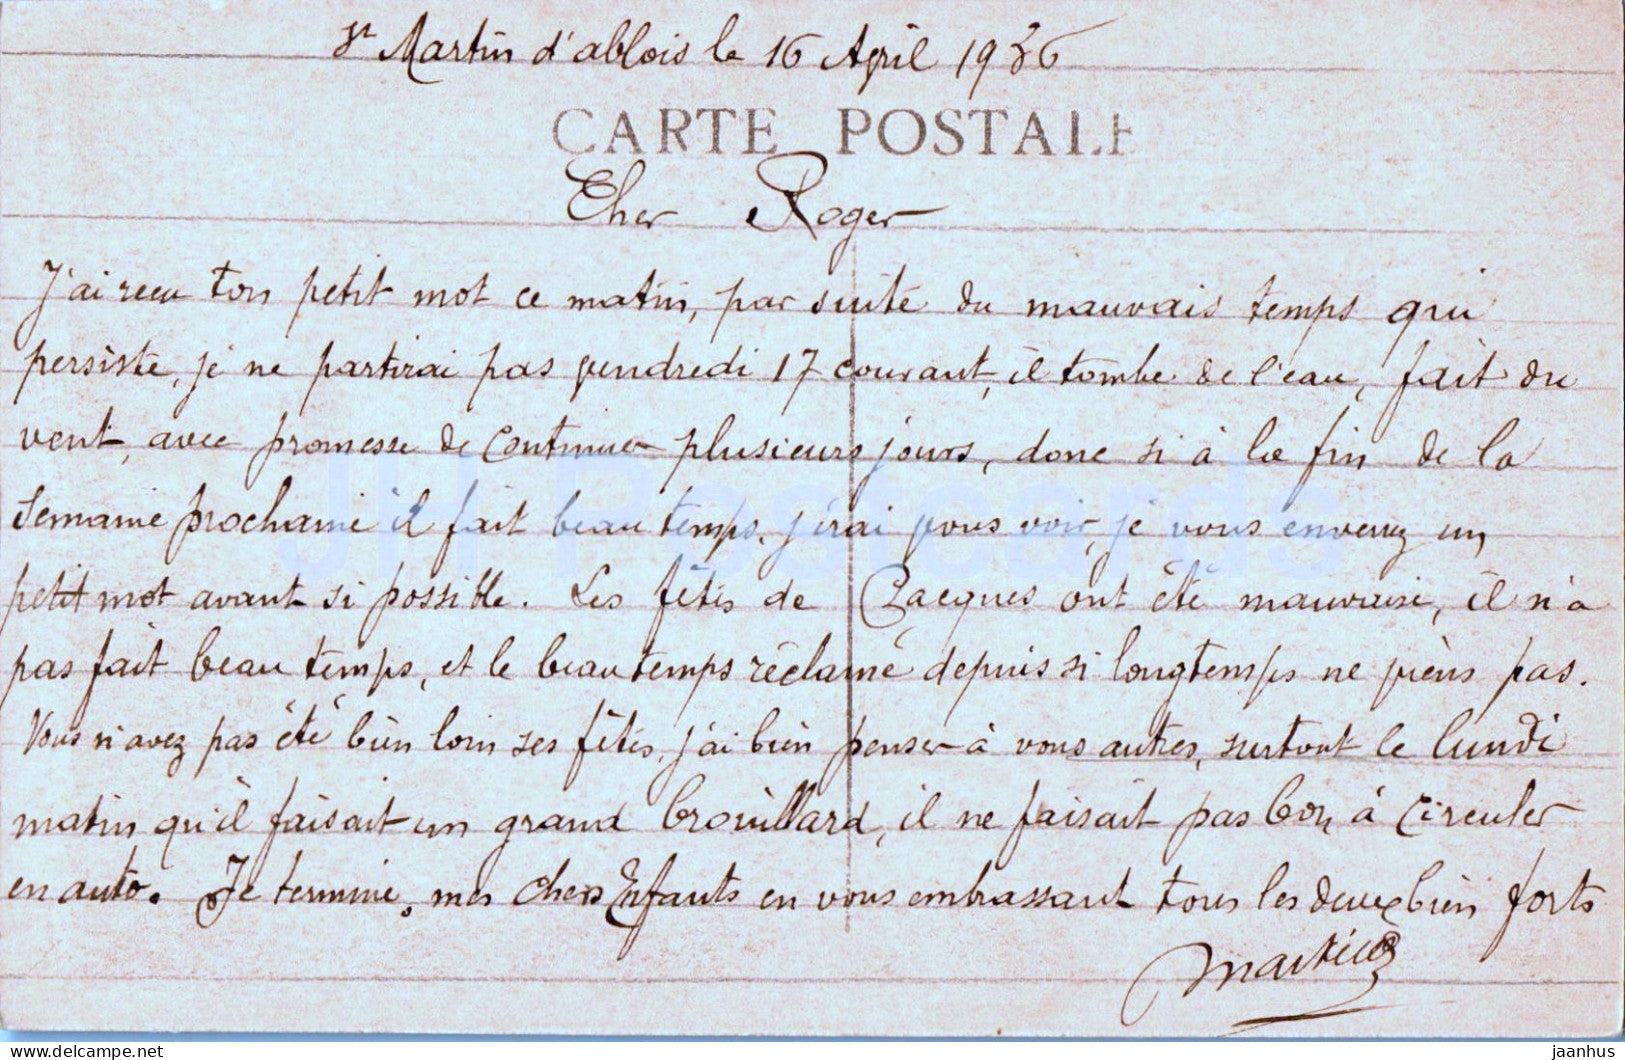 St Martin d'ablois le 16 April 1936
CARTE POSTALE
Cher Roger
J'ai recu ton petit mot ce matin, par suite du mauvais temps qui
persiste, je ne partirai pas vendredi 17 courant, il tombe de l'eau, fait du
vent, avec promesse de continuer plusieurs jours, donc si à la fin de la
semaine prochaine il fait beau temps, j'irai vous voir, je vous enverrez un
petit mot avant si possible. Les fêtes de Pacques ont été mauvaise, il n'a
pas fait beau temps, et le beau temps réclamé depuis si longtemps ne viens pas.
Vous n'avez pas été bien loin ses fêtes, j'ai bien penser à vous autres, surtout le lundi
matin qu'il faisait un grand brouillard, il ne faisait pas bon à circuler
en auto. Je termine, mes chers Enfants en vous embrassant tous les deux bien forts
JH Postcards
delcampe.net
jaanhus